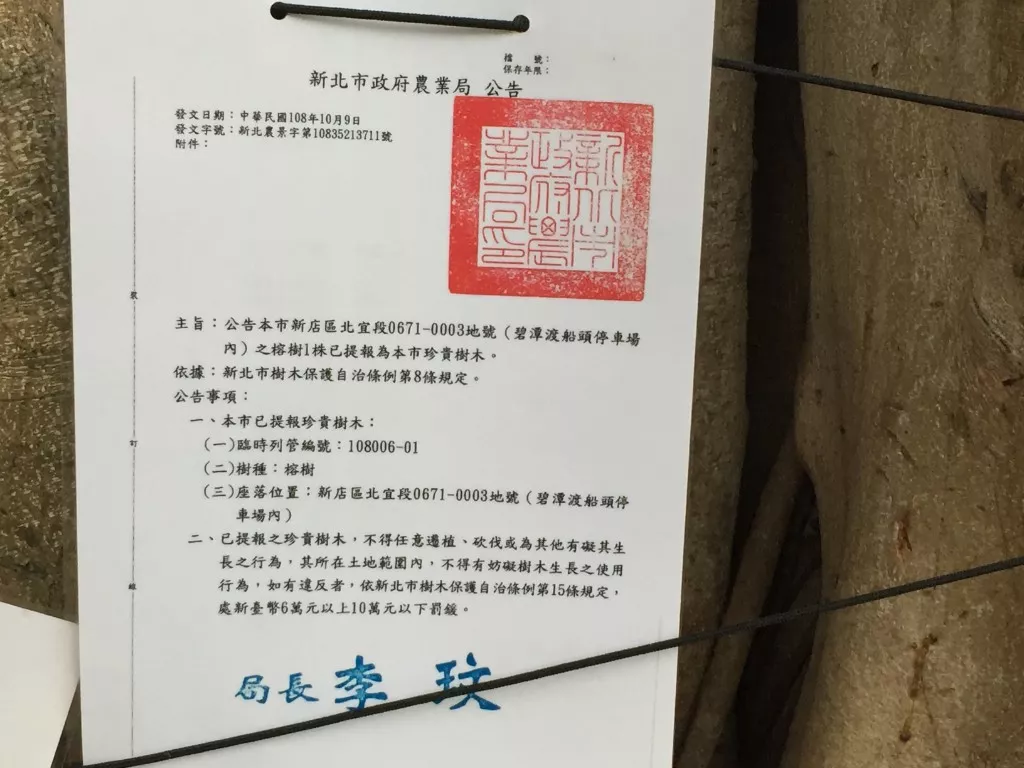 檔　　號：
保存年限：
新北市政府農業局 公告
發文日期：中華民國108年10月9日
發文字號：新北農景字第10835213711號
附件：
新北市
政府農
業局印
裝
主旨：公告本市新店區北宜段0671-0003地號（碧潭渡船頭停車場
內）之榕樹1株已提報為本市珍貴樹木。
依據：新北市樹木保護自治條例第8條規定。
公告事項：
一、本市已提報珍貴樹木：
(一)臨時列管編號：108006-01
(二)樹種：榕樹
(三)座落位置：新店區北宜段0671-0003地號（碧潭渡船頭停
車場內）
訂
二、已提報之珍貴樹木，不得任意遷植、砍伐或為其他有礙其生
長之行為，其所在土地範圍內，不得有妨礙樹木生長之使用
行為，如有違反者，依新北市樹木保護自治條例第15條規定，
處新臺幣6萬元以上10萬元以下罰鍰。
線
局長 李 玟